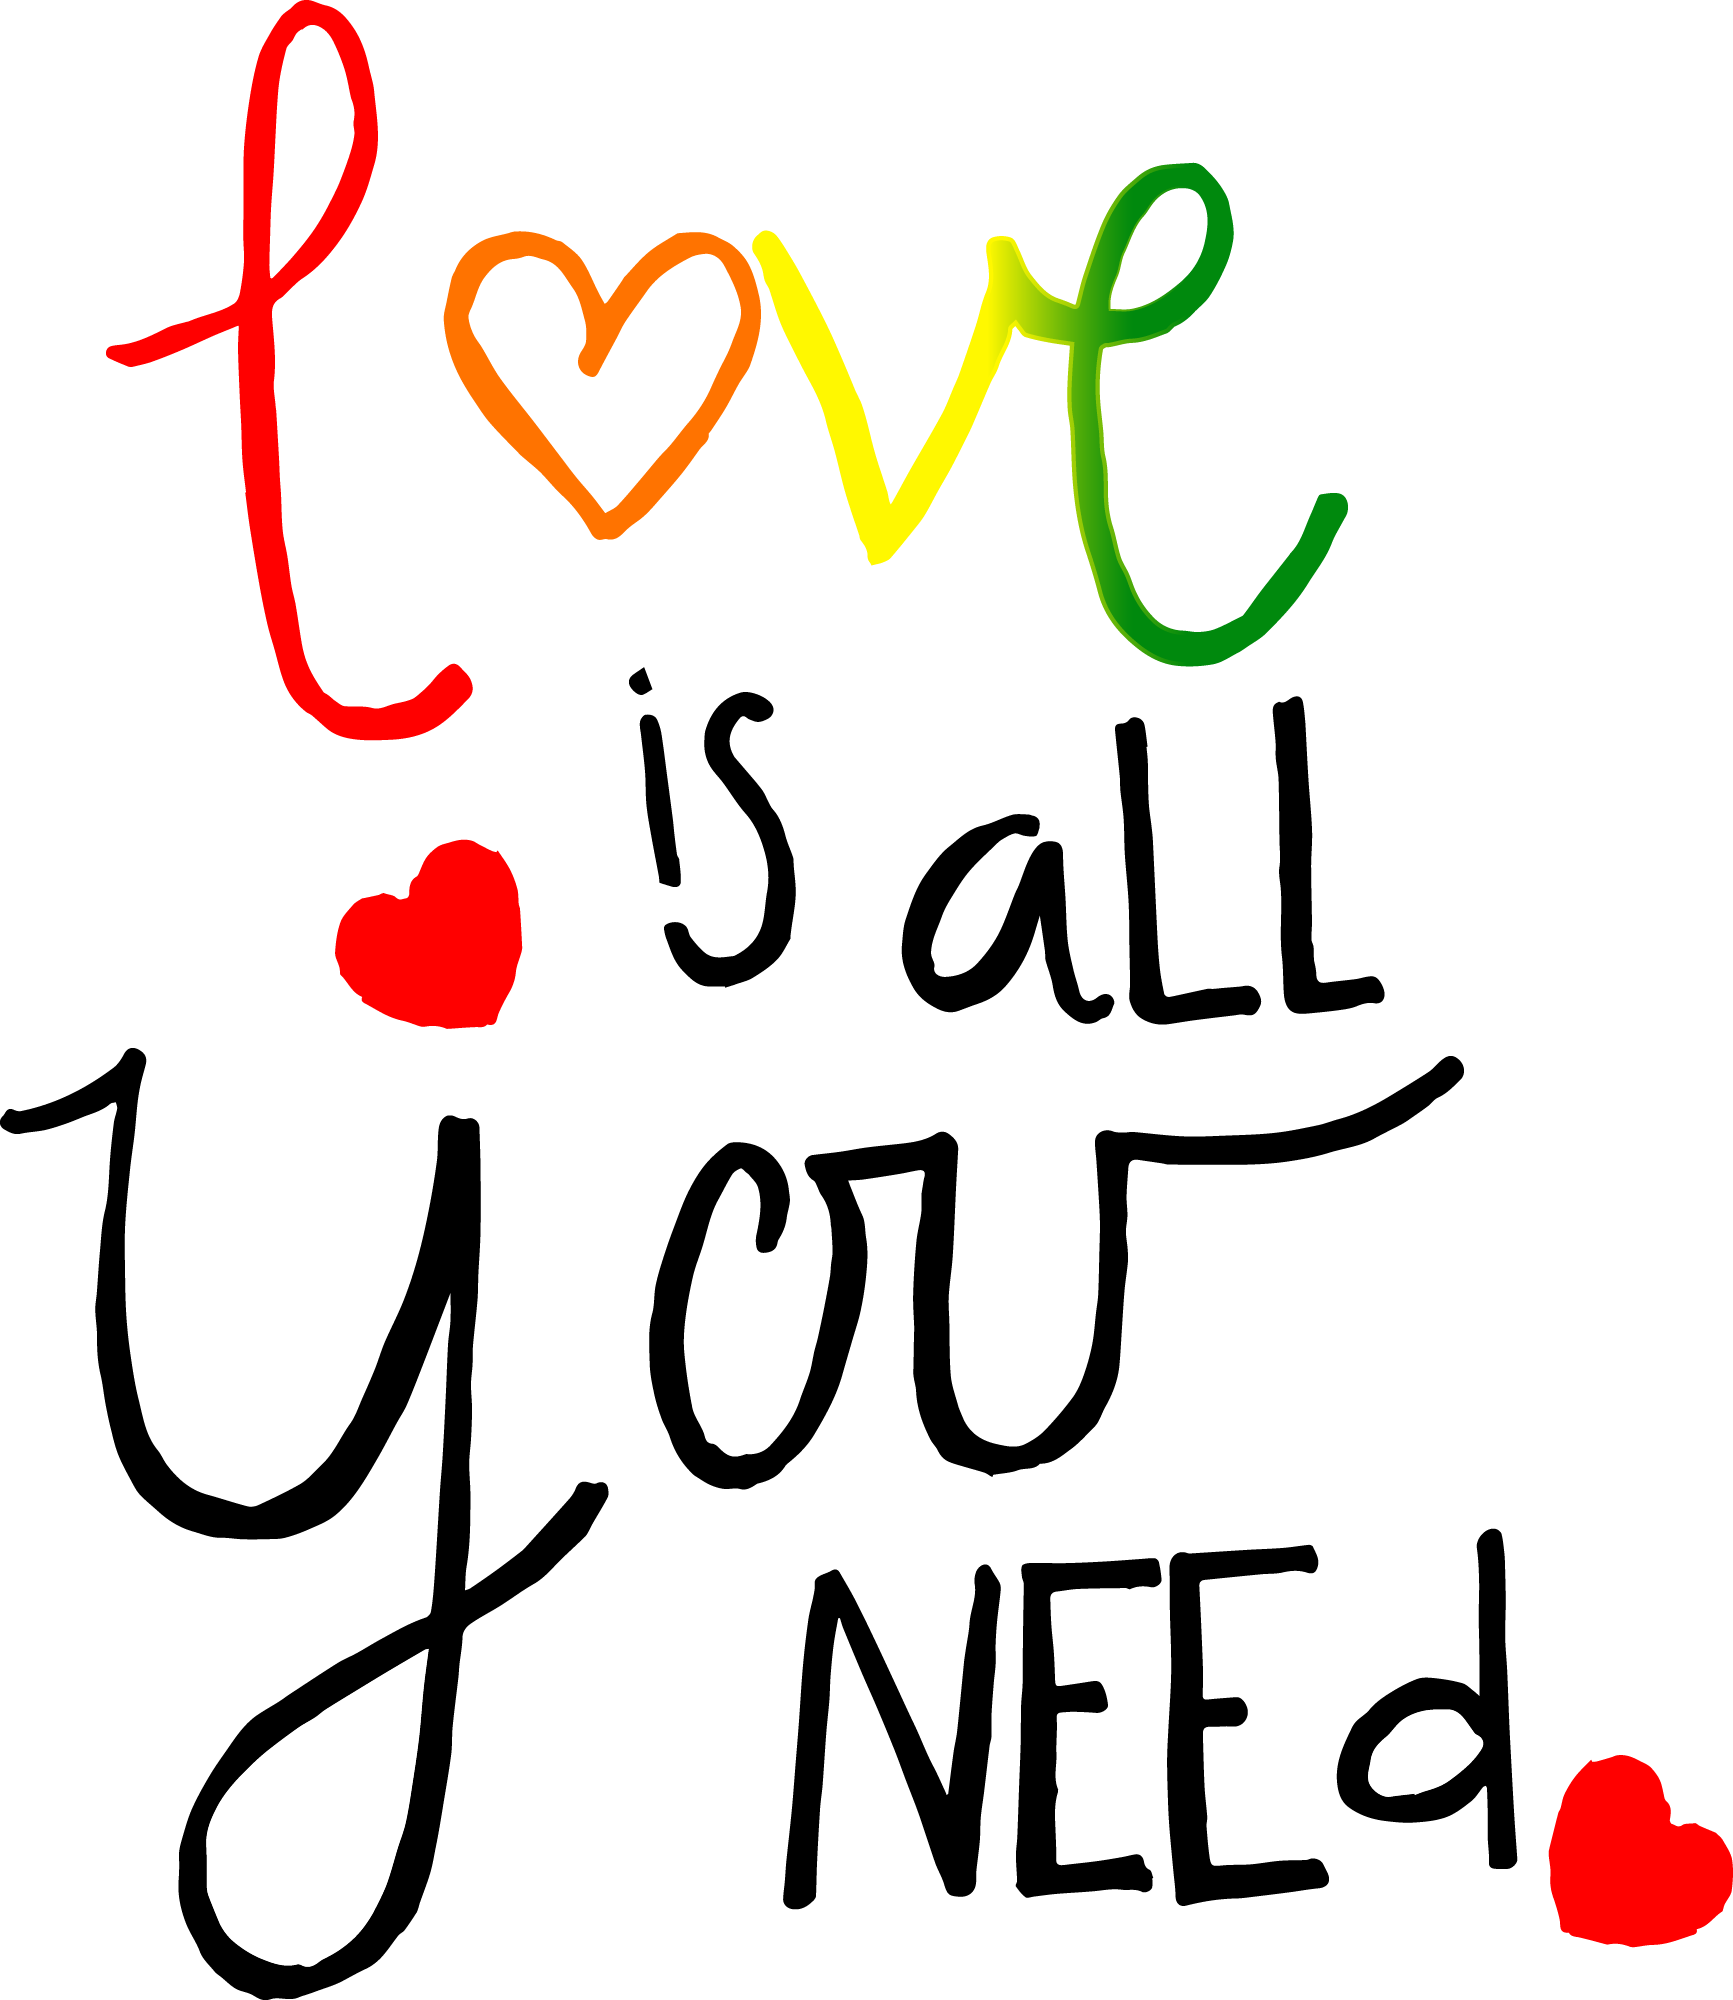 love
is all
you
NEEd